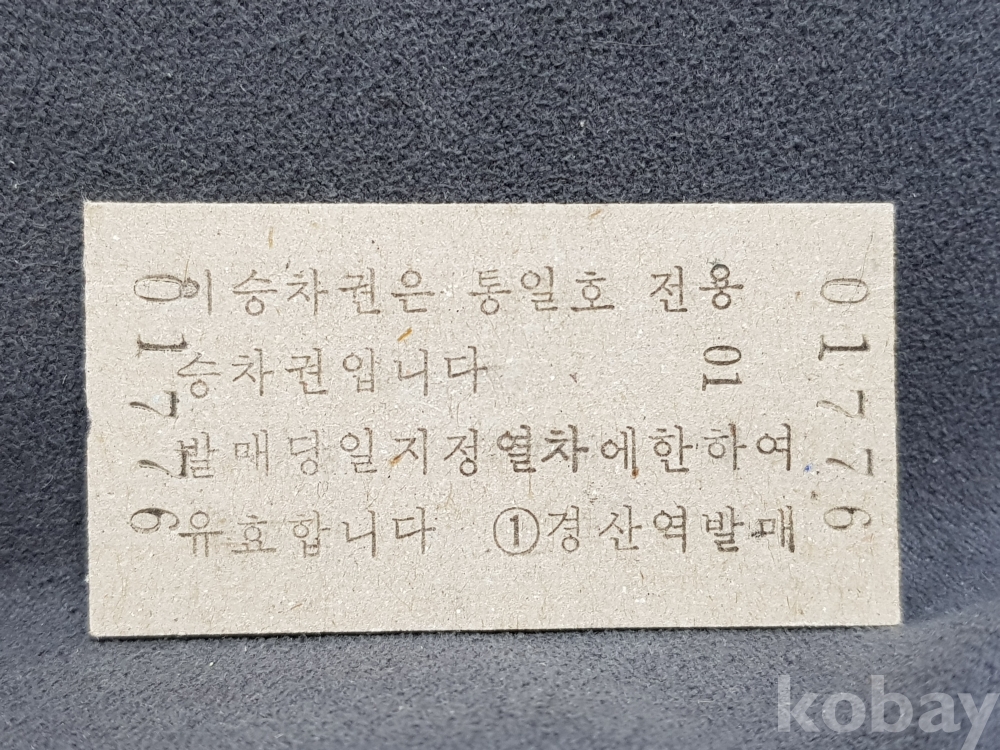 이승차권은 통일호 전용
승차권입니다 01
발매당일지정열차에한하여
유효합니다 ①경산역발매
01776
01776
kobay